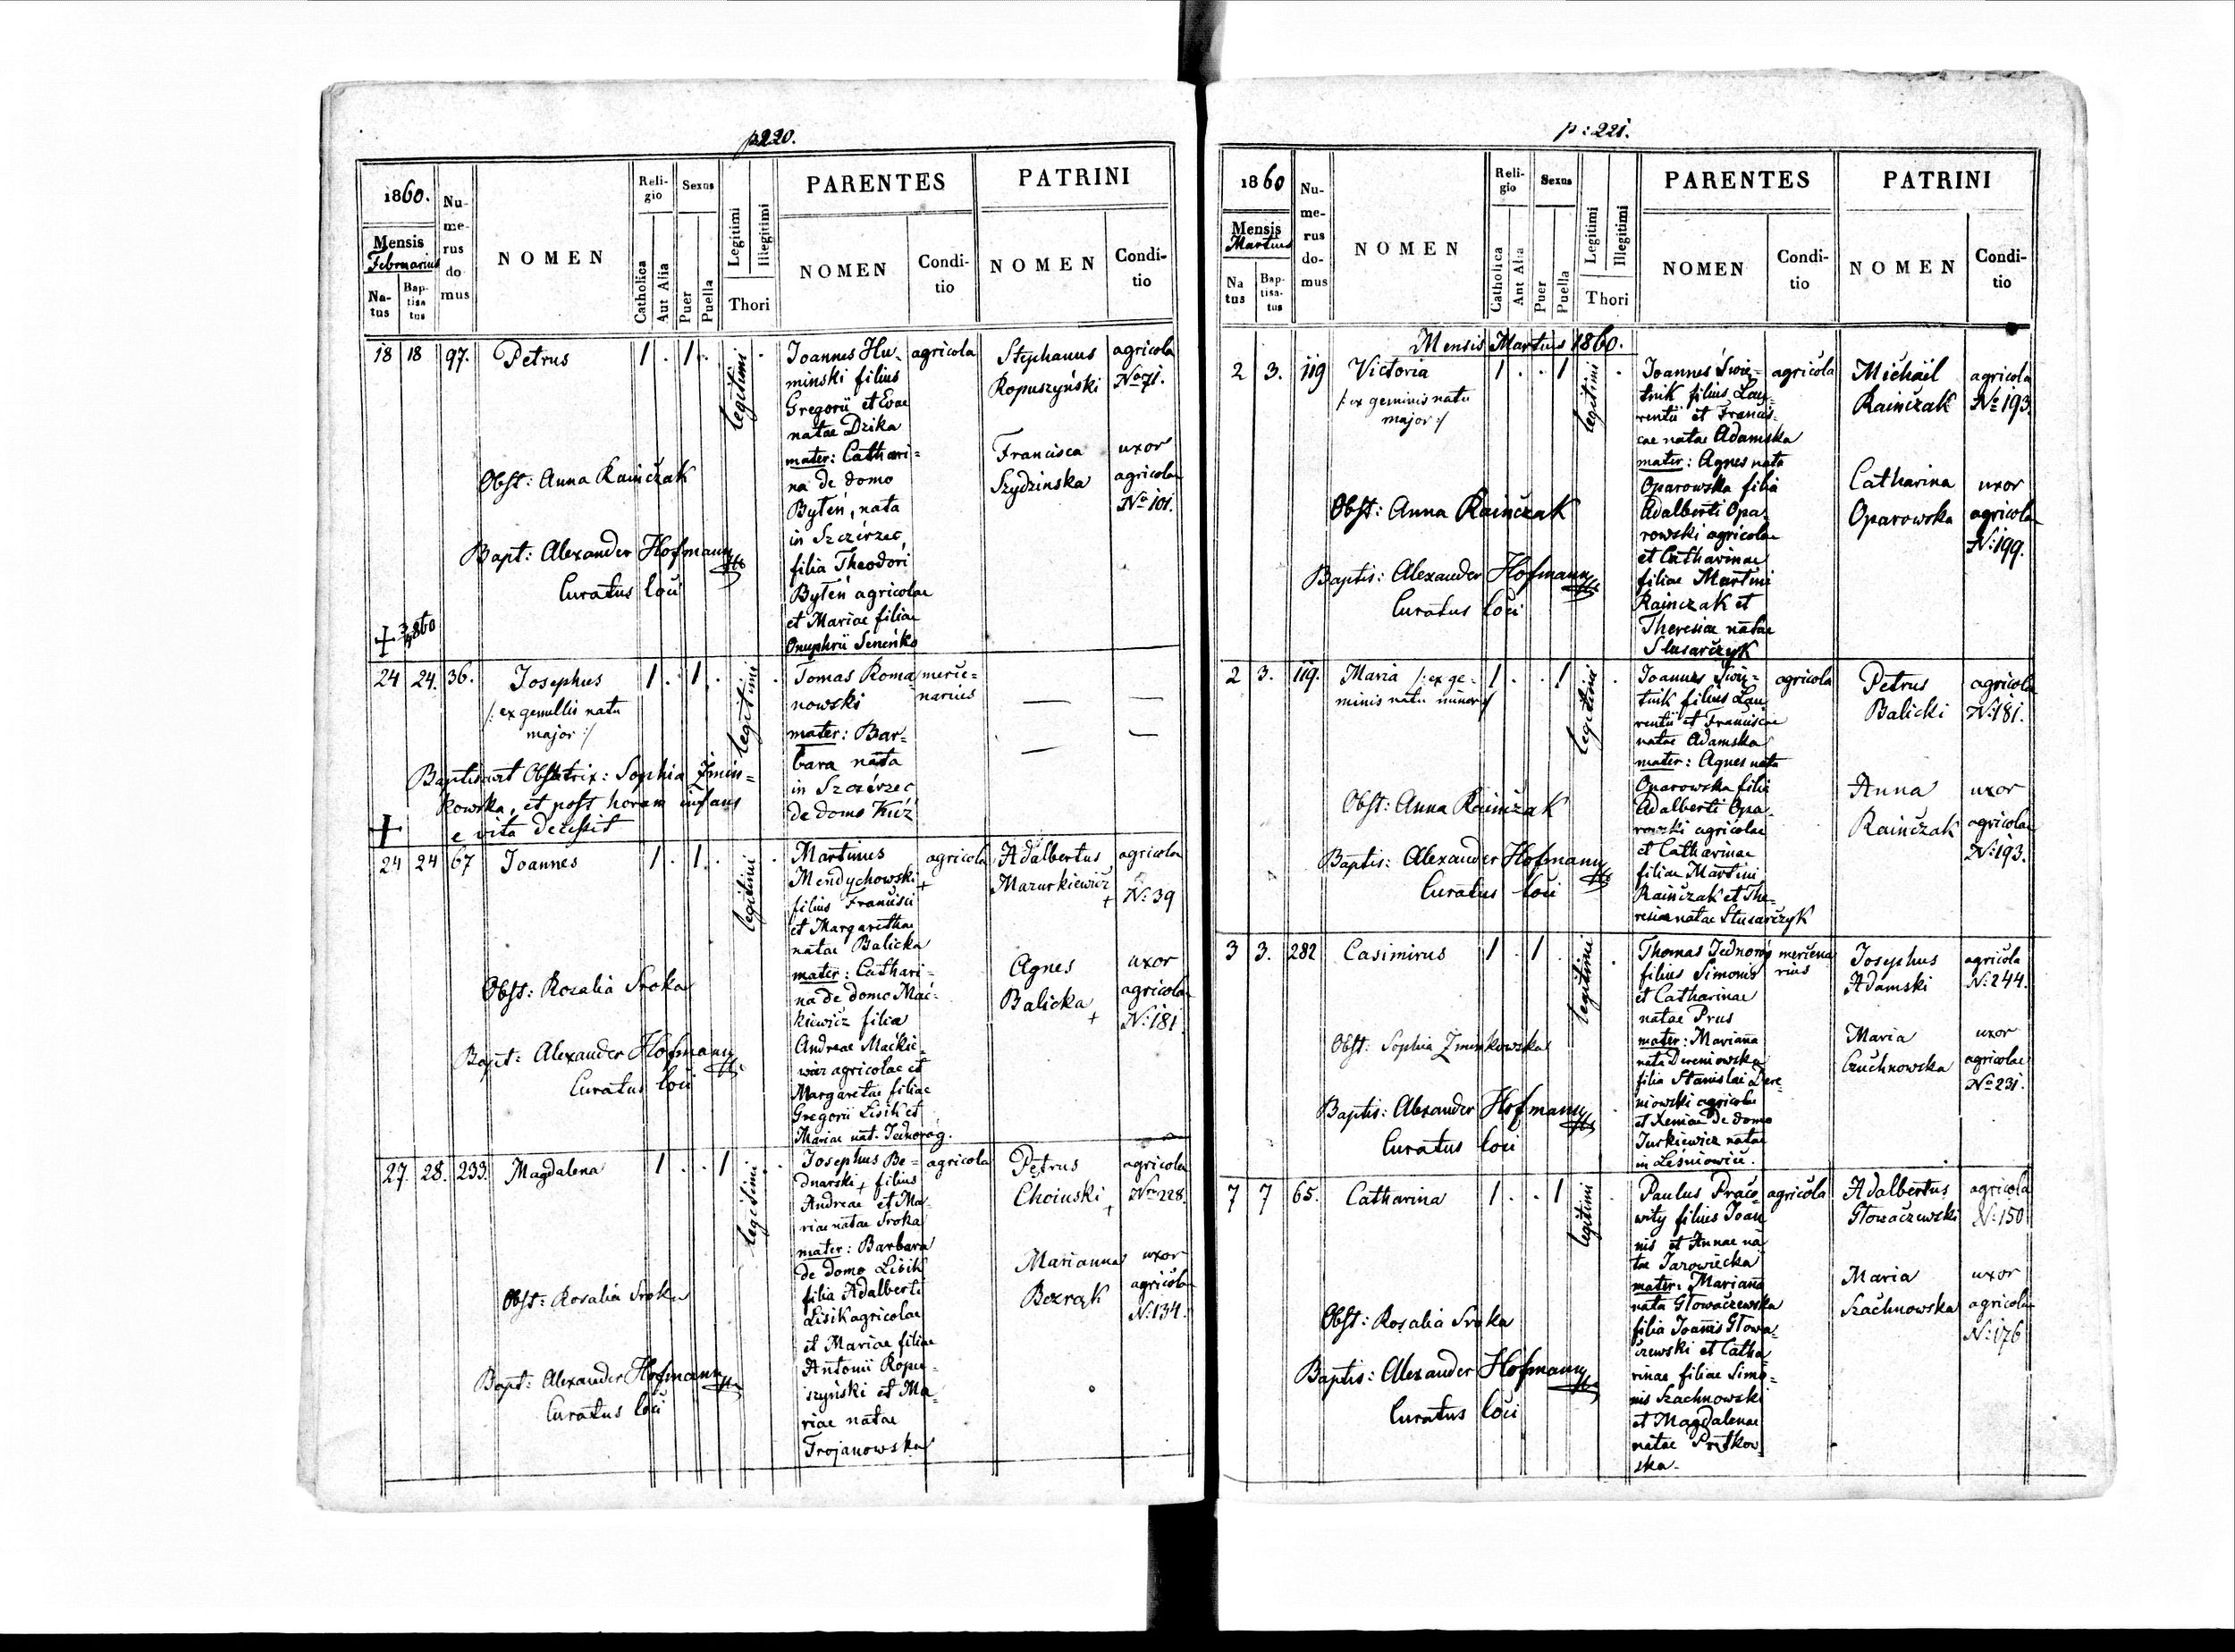 p220.
1860.
Mensis
Februarius
Na-
tus
Bap-
tisa
tus
Nu-
me-
rus
do
mus
NOMEN
Reli-
gio
Catholica
Aut Alia
Sexus
Puer
Puella
Legitimi
Illegitimi
Thori
PARENTES
NOMEN
Condi-
tio
PATRINI
NOMEN
Condi-
tio
18 18 97. Petrus 1 . 1 .
legitimi
Obst: Anna Rainczak
Bapt: Alexander Hofmann
Curatus loci
Joannes Hu-
minski filius
Gregorii et Evae
natae Dzika
mater: Cathari=
na de domo
Byteń, nata
in Szczérzec,
filia Theodori
Byteń agricolae
et Mariae filiae
Onuphrii Seneńko
agricola
Stephanus
Ropuszyński
agricola
No 71.
Francisca
Szydzinska
uxor
agricolae
No 101.
24 24. 36. Josephus 1 . 1 .
/: ex gemellis natu
major :/
legitimi
Baptisavit Obstetrix: Sophia Żmin=
kowska, et post horam infans
e vita decessit
Tomas Roma
nowski
mater: Bar=
bara nata
in Szczérzec
de domo Kúź
merče=
narius
24 24 67 Joannes 1 . 1 .
legitimi
Obst: Rozalia Sroka
Bapt: Alexander Hofmann
Curatus loci
Martinus
Mendychowski +
filius Francisci
et Margarethae
natae Balicka
mater: Cathari=
na de domo Mać-
kiewicz filia
Andreae Maćkie
wicz agricolae et
Margaretae filiae
Gregorii Lisik et
Mariae nat. Jednorog.
agricola
Adalbertus
Mazurkiewicz
+
agricola
N: 39
Agnes
Balicka
+
uxor
agricolae
N: 181
27. 28. 233. Magdalena 1 . . 1
legitimi
Obst: Rosalia Sroka
Bapt: Alexander Hofmann
Curatus loci
Josephus Be=
dnarski + filius
Andreae et Ma
riae natae Sroka
mater: Barbara
de domo Lisik
filia Adalberti
Lisik agricolae
et Mariae filiae
Antonii Ropu-
szyński et Ma
riae natae
Trojanowska
agricola
Petrus
Choinski
+
agricola
No 228.
Marianna
Bezrąk
uxor
agricolae
N: 134.
p: 221.
1860
Mensis
Martius
Na
tus
Bap-
tisa-
tus
Nu-
me-
rus
do-
mus
NOMEN
Reli-
gio
Catholica
Ant Alia
Sexus
Puer
Puella
Legitimi
Illegitimi
Thori
PARENTES
NOMEN
Condi-
tio
PATRINI
NOMEN
Condi-
tio
Mensis Martius 1860.
2 3. 119 Victoria 1 . . 1
/: ex geminis natu
major :/
legitimi
Obst: Anna Rainczak
Baptis: Alexander Hofmann
Curatus loci
Joannes Świę=
tnik filius Lau-
rentii et Francis-
cae natae Adamska
mater: Agnes nata
Oparowska filia
Adalberti Opa
rowski agricolae
et Catharinae
filiae Martini
Rainczak et
Theresiae natae
Slusarczyk
agricola
Michäil
Rainczak
agricola
No 193.
Catharina
Oparowska
uxor
agricolae
N: 199.
2 3. 119. Maria /: ex ge- 1 . . 1
minis natu minor :/
legitimi
Obst: Anna Rainczak
Baptis: Alexander Hofmann
Curatus loci
Joannes Świę=
tnik filius Lau
rentii et Franciscae
natae Adamska
mater: Agnes nata
Oparowska filia
Adalberti Opa
rowski agricolae
et Catharinae
filiae Martini
Rainczak et The-
resiae natae Slusarczyk
agricola
Petrus
Balicki
agricola
N: 181.
Anna
Rainczak
uxor
agricolae
N: 193.
3 3. 282 Casimirus 1 . 1 .
legitimi
Obst: Sophia Żminkowska
Baptis: Alexander Hofmann
Curatus loci
Thomas Jednoróg
filius Simonis
et Catharinae
natae Prus
mater: Marianna
nata Dereniowska
filia Stanislai Dere-
niowski agricolae
et Xeniae de domo
Jurkiewicz natae
in Leśniowice.
mercena
rius
Josephus
Adamski
agricola
N: 244.
Maria
Czuchnowska
uxor
agricolae
No 231.
7 7 65. Catharina 1 . . 1
legitimi
Obst: Rozalia Sroka
Baptis: Alexander Hofmann
Curatus loci
Paulus Praco-
wity filius Joan
nis et Annae na
tae Jarowiecka
mater: Marianna
nata Głowaczewska
filia Joannis Głowa-
czewski et Catha
rinae filiae Simo=
nis Szachnowski
et Magdalenae
natae Pretkow
ska.
agricola
Adalbertus
Głowaczewski
agricola
N: 150
Maria
Szachnowska
uxor
agricolae
N: 176